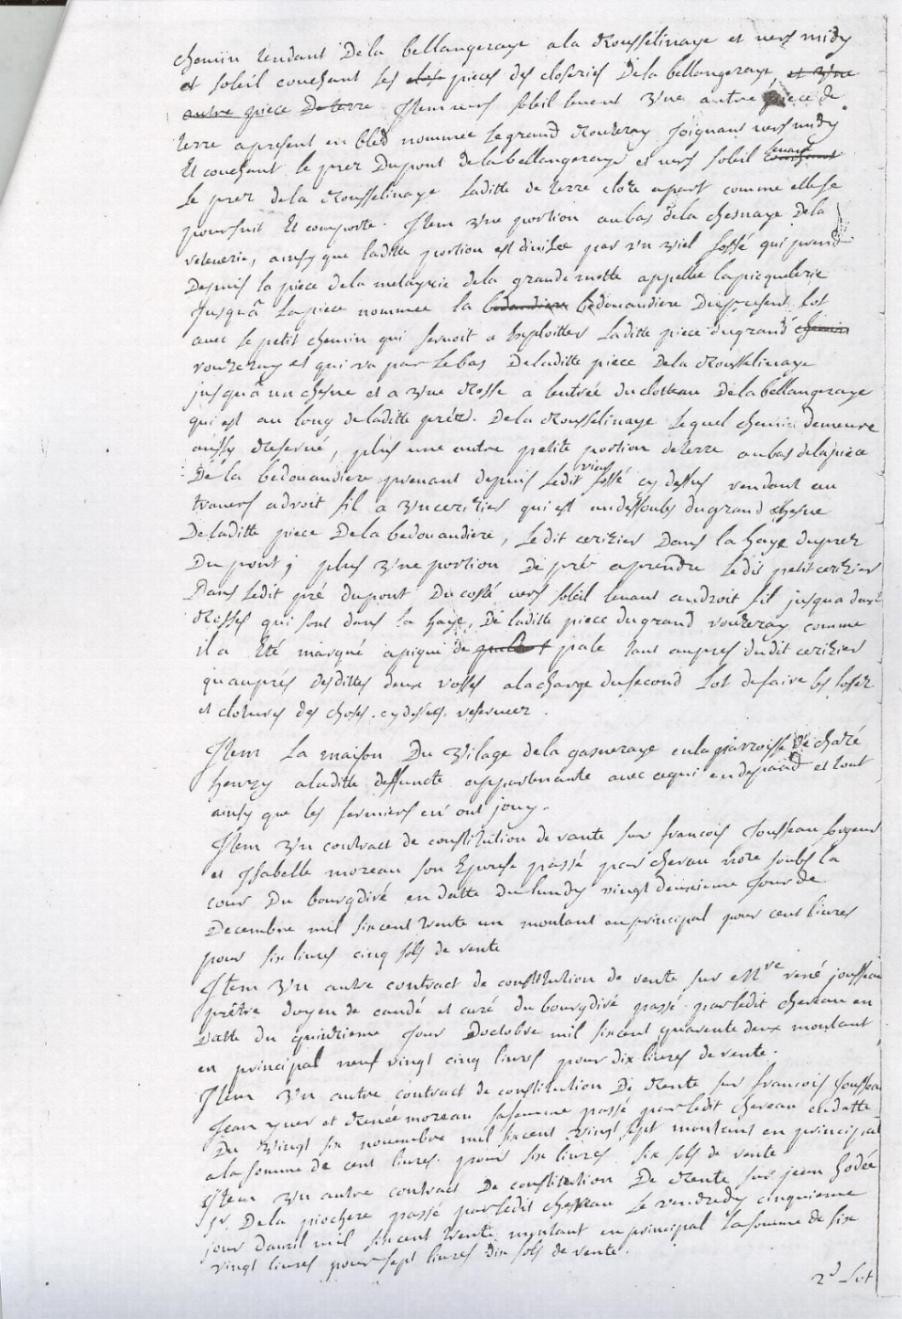 chemin tendant De la bellangeraye a la Rousselinaye et vers midy
et soleil couchant les clos pieces des closeries De la bellangeraye, et d'une
autre piece De terre Item vers soleil levant d'une autre piece de
terre apresent en bled nommee Le grand vouzeray Joignant vers midy
Et couchant le prez Dupont de la bellangeraye et vers soleil levant
Le prez de la Rousselinaye Laditte de terre close apart comme elle se
poursuit Et comporte. Item d'une portion au bas de la chesnaye de la
veteuerie, ainsy que laditte portion est divisee par un viel fossé qui prend
Depuis la piece de la metayrie de la grande motte appellee la picquelerie
Jusqu'a La piece nommee la bedouandiere Du present lot
avec le petit chemin qui servoit a Exploitter Laditte piece du grand chemin
vouzeray et qui va par le bas De laditte piece De la Rousselinaye
jusqu'a un chesne et a d'une Rosse a l'entrée du closteau De la bellangeraye
qui est au long de laditte prée. De la Rousselinaye Lequel chemin demeure
aussy Reservé, plus une autre petite portion de terre au bas de la piece
De la bedouandiere prenant depuis ledit vieux fossé cy dessus rendant au
travers adroit fil a d'un cerizier qui est au dessoubs du grand chesne
De laditte piece De la bedouandiere, Ledit cerizier Dans la haye du prez
Du pont; plus d'une portion De pré aprendre Ledit petit cerizier
Dans ledit pré dupont Du costé vers soleil levant audroit fil jusqu'a deux
Rosses qui sont dans la haye, De laditte piece du grand vouzeray comme
il a Eté marqué a piqué de pale tant aupres dudit cerizier
qu'aupres desdittes deux rosses a la charge du second Lot de faire les fossez
et clotures des choses cy dessus reservees.
Item La maison Du Vilage de la gasneraye en la parroisse De chazé
henry a laditte deffuncte appartenante avec ce qui en depand et tout
ainsy que les fermiers en ont jouy.
Item d'un contract de constitution de rante sur francois Jousseau
et Isabelle moreau son Epouse passé par chevau nore soubs la
cour Du bourgdiré en datte du lundy vingt deuxieme Jour de
Decembre mil six cent trente un montant au principal pour cent livres
pour six livres cinq sols de rente
Item d'un autre contract de constitution de rente sur Mtre rené jousseau
prêtre doyen de candé et curé du bourgdiré passé par ledit chevau en
datte du quinzieme Jour D'octobre mil six cent quarente deux montant
en principal neuf vingt cinq livres pour dix livres de rente.
Item d'un autre contract de constitution De Rente sur francois Jousseau
Jean yver et Renée moreau sa femme passé par ledit chevau en datte
Du vingt six novembre mil six cent vingt sept montant en principal
a la somme de cent livres. pour six livres six sols de rente
Item d'un autre contract De constitution De Rente sur jean hodée
sr. De la piochere passé par ledit chevau Le vendredy cinquieme
jour d'avril mil six cent trente montant en principal la somme de six
vingt livres pour sept livres dix sols de rente.
2d Lot